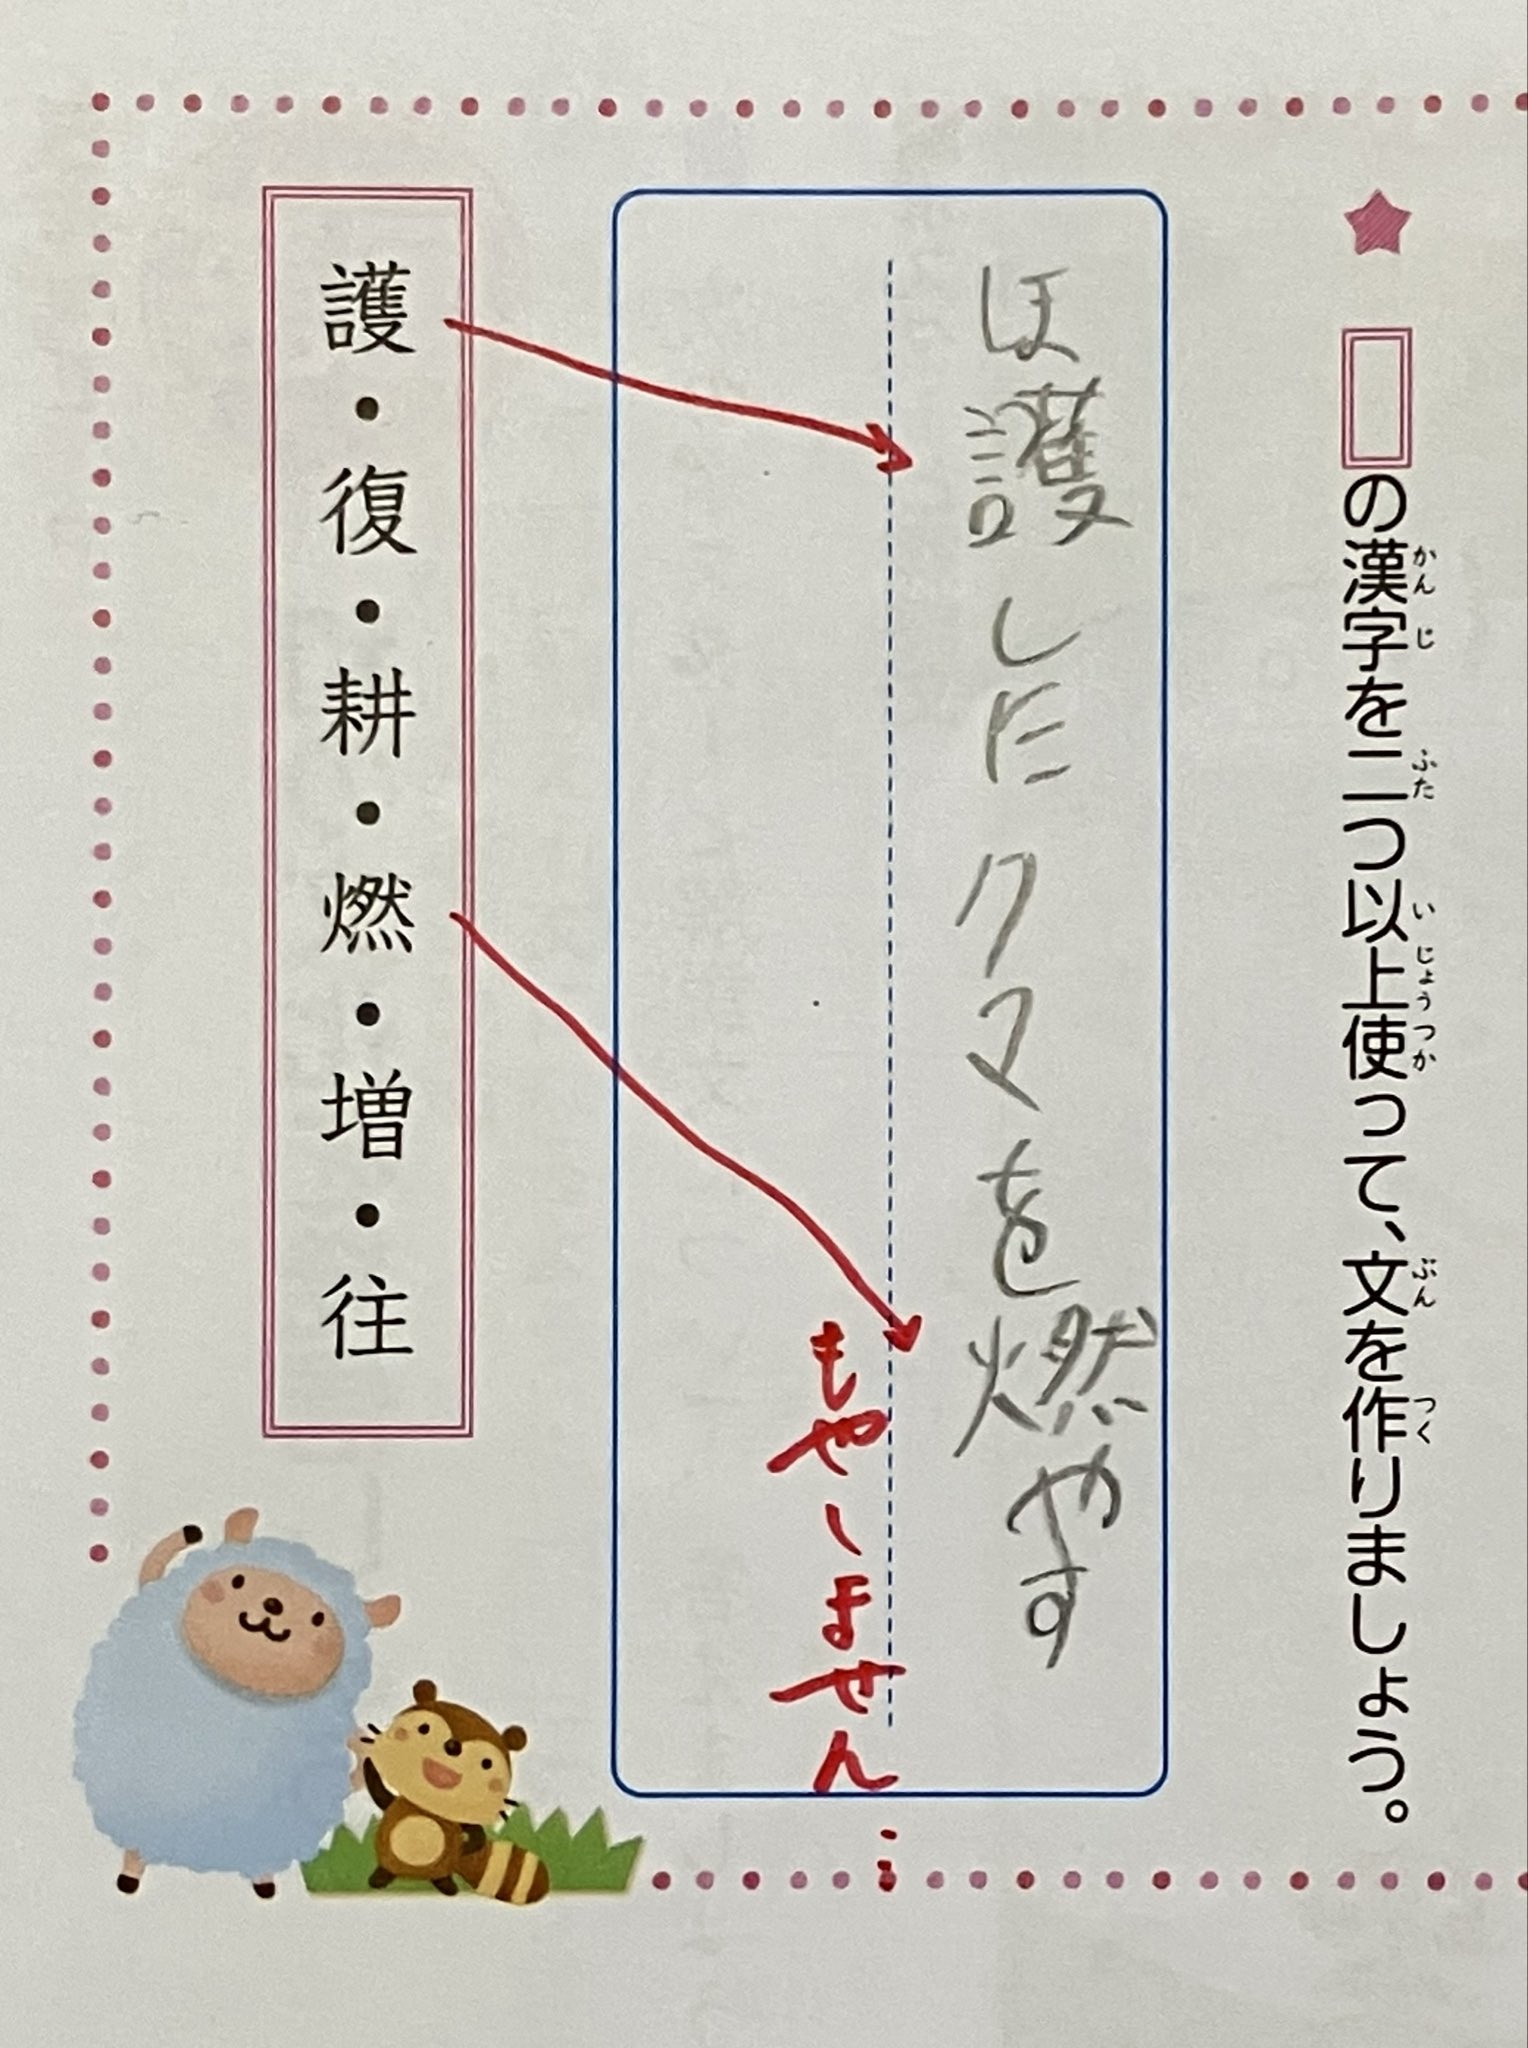 ★□の漢字を二つ以上使って、文を作りましょう。
かんじ ふた いじょうつか ぶん つく
ほ護したクマを燃やす
もやしません…
護・復・耕・燃・増・往